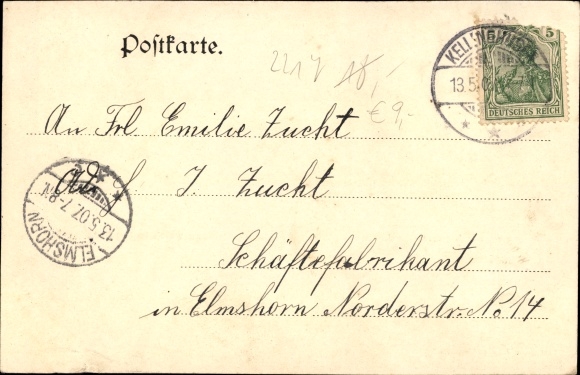 Postkarte.
2217 18,-
€ 9,-
5
DEUTSCHES REICH
KELLINGHUSEN
13.5.
An Frl Emilie Zucht
J. Zucht
Schäftefabrikant
in Elmshorn Norderstr. No 14
ELMSHORN
13.5.07.7-8N.